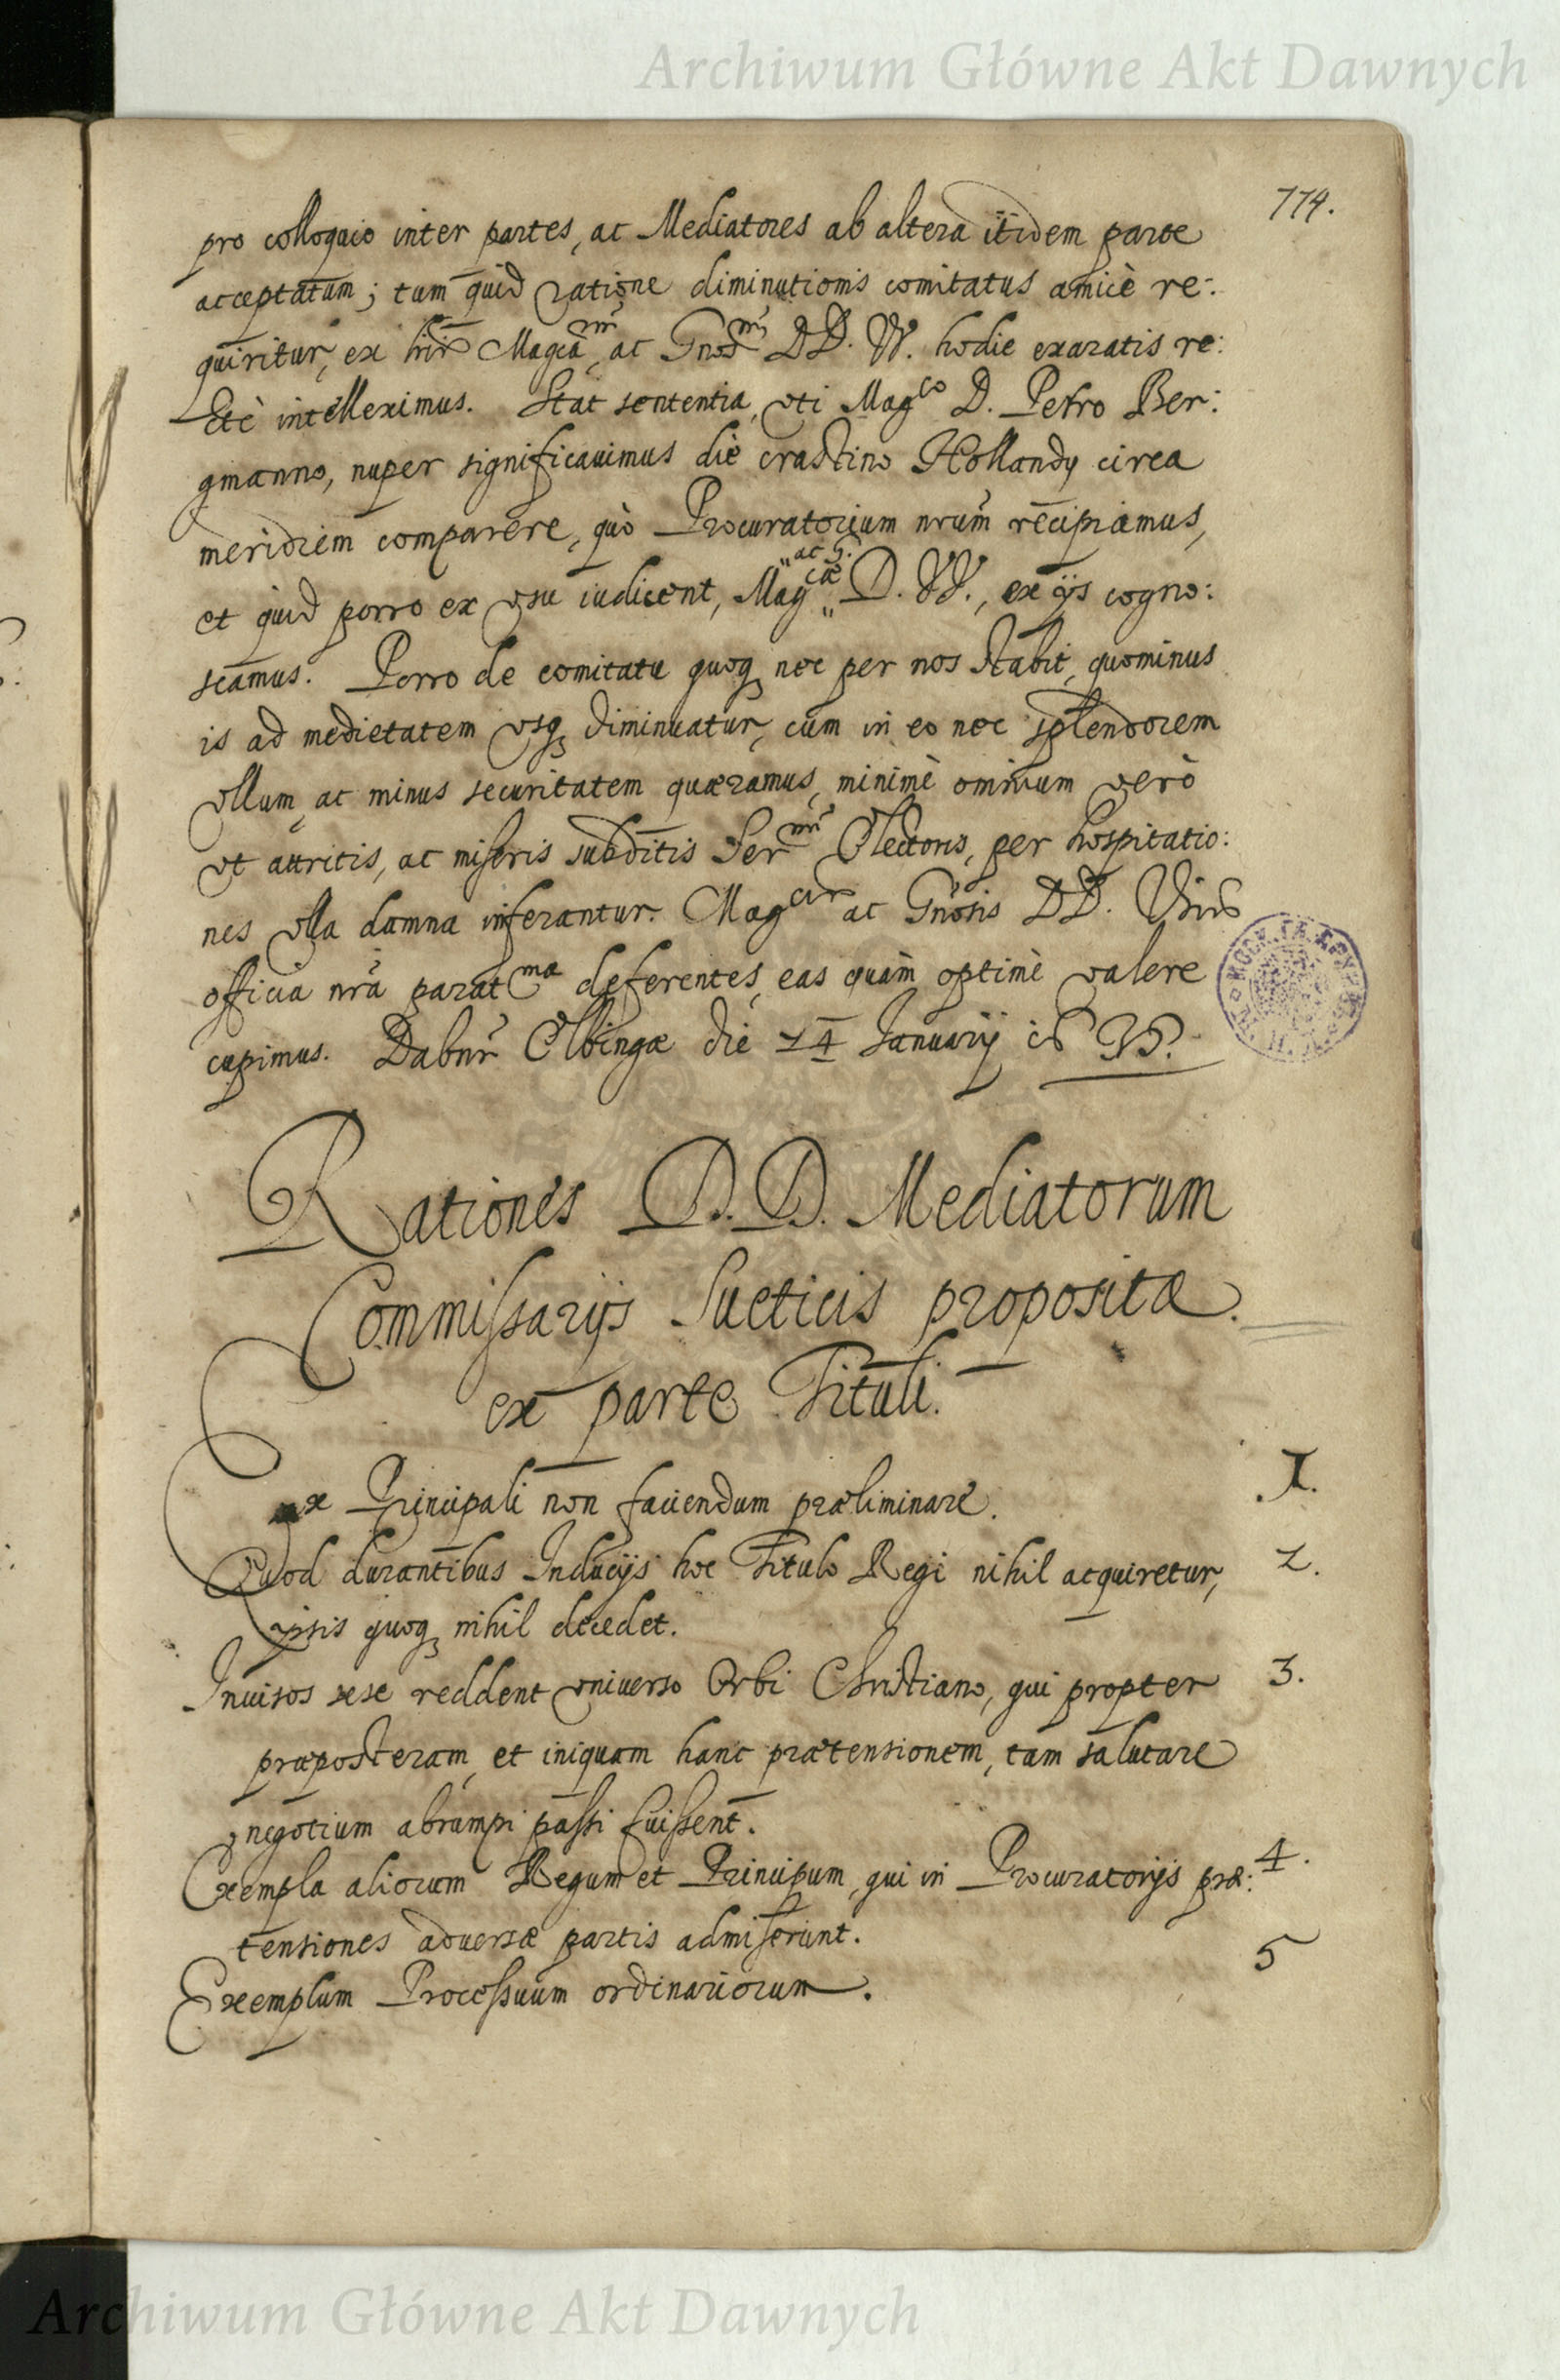 Archiwum Główne Akt Dawnych
774.
pro colloquio inter partes, ac Mediatores ab altera itidem parte
acceptatum; tum quid ratione diminutionis comitatus amicè re:
quiritur, ex ac DD. VV. hodie exaratis re:
ctè intelleximus. Stat sententia, uti Magco D. Petro Ber:
gmanno, nuper significauimus die crastino Hollandy circa
meridiem comparere, quò Procuratorium nrum recipiamus,
ac G.
et quid porro ex usu iudicent, Magcæ D. VV., ex ijs cogno:
scamus. Porro de comitatu quoq nec per nos stabit, quominus
is ad medietatem usq diminuatur, cum in eo nec splendorem
ullum, ac minus securitatem quæramus, minimè omnium verò
ut attritis, ac miseris subditis Sermi Electoris, per hospitatio:
nes ulla damna inferantur. ac Gnosis DD. Vris
officia nra paratma deferentes, eas quàm optimè valere
cupimus. Dabnr Elbingæ die 14 Januarij
Rationes D.D. Mediatorum
Commissarijs Sueticis propositæ.
ex parte Tituli.
Ex Principali non faciendum præliminare. 1.
Quod durantibus Inducijs hoc Titulo Regi nihil acquiretur, 2.
ipsis quoq nihil decedet.
Inuisos sese reddent universo Orbi Christiano, qui propter 3.
præposteram, et iniquam hanc prætensionem, tam salutare
negotium abrumpi passi fuissent.
Exempla aliorum Regum et Principum, qui in Procuratorijs præ: 4.
tensiones aduersæ partis admiserunt.
Exemplum Processuum ordinariorum. 5
Archiwum Główne Akt Dawnych